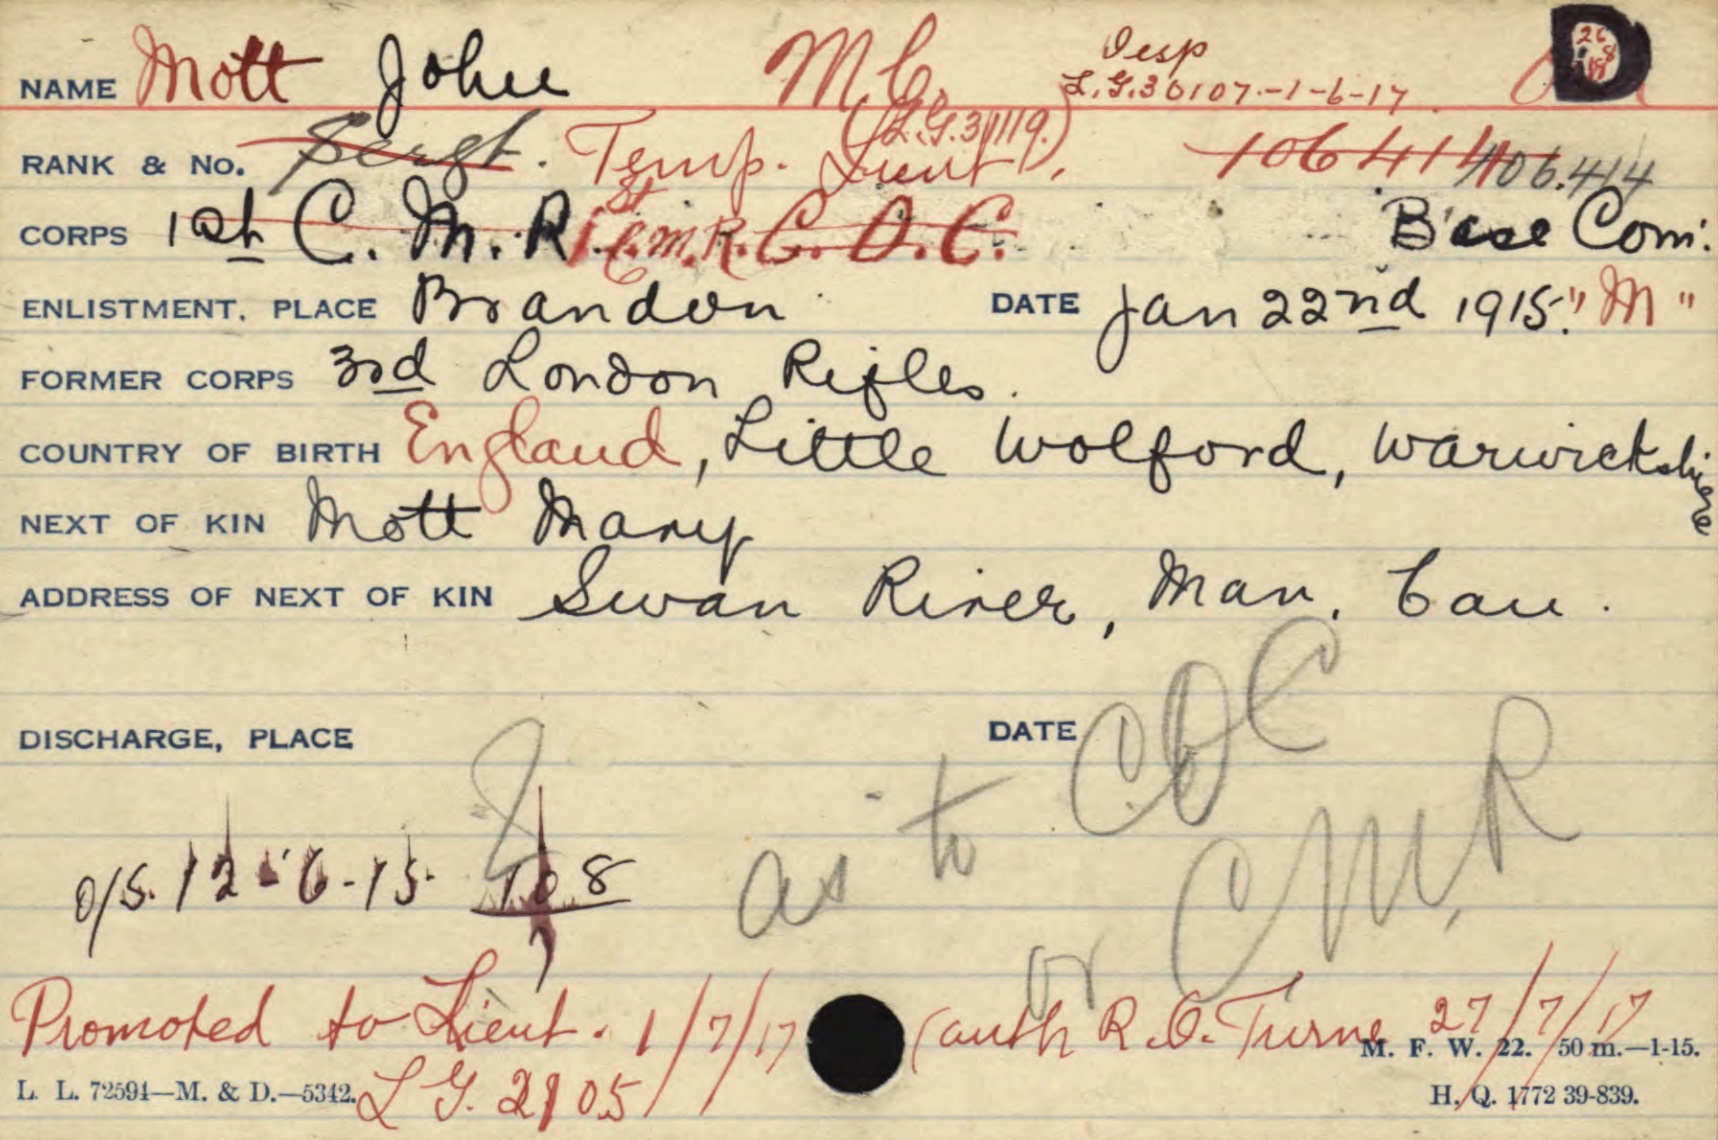 NAME Mott John M C. Desp D
L.G. 30107.-1-6-17
(L.G. 31119.)
RANK & No. Sergt. Temp. Lieut. 106414 106.414
CORPS 1st C. M. R. 1st C.M.R. C. O. C. Base Com.
ENLISTMENT, PLACE Brandon DATE Jan 22nd 1915. "M"
FORMER CORPS 3rd London Rifles.
COUNTRY OF BIRTH England, Little Wolford, Warwickshire
NEXT OF KIN Mott Mary
ADDRESS OF NEXT OF KIN Swan River, Man. Can.
DISCHARGE, PLACE DATE
as to COC
or CM.R
O/S. 12-6-15. 108
Promoted to Lieut. 1/7/17 (auth R.O. Turne 27/7/17
M. F. W. 22. 50 m.—1-15.
L. L. 72594—M. & D.—5342. L G. 2905
H. Q. 1772 39-839.